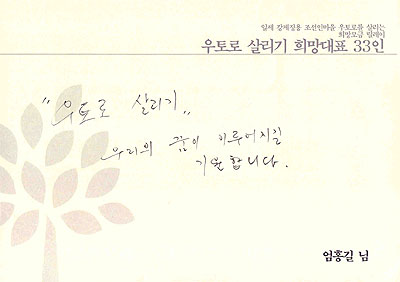 일제 강제징용 조선인마을 우토로를 살리는
희망모금 릴레이
우토로 살리기 희망대표 33인
"우토로 살리기"
우리의 꿈이 이루어지길
기원합니다.
엄홍길 님